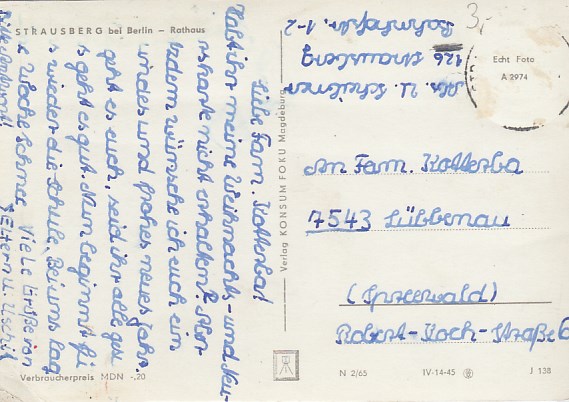 STRAUSBERG bei Berlin – Rathaus
Liebe Fam. Kotterba!
Habt ihr meine Weihnachts- und Neu-
jahrskarte nicht erhalten? Trotzdem wünsche ich euch ein
gesundes und frohes neues Jahr.
Wie geht es euch, seid ihr alle gesund?
Uns geht es gut. Nun beginnt für
uns wieder die Schule. Bei uns lag
eine Woche Schnee. Viele Grüße von
Eltern u. Uschi
Bitte Antwort!
Verbraucherpreis MDN -,20
Verlag KONSUM FOKU Magdeburg
Abs. U.
126 Strausberg
Bahnhofstr. 1-2
3,-
Echt Foto
A 2974
An Fam. Kotterba
7543 Lübbenau
(Spreewald)
Robert-Koch-Straße 6
N 2/65
IV-14-45
J 138